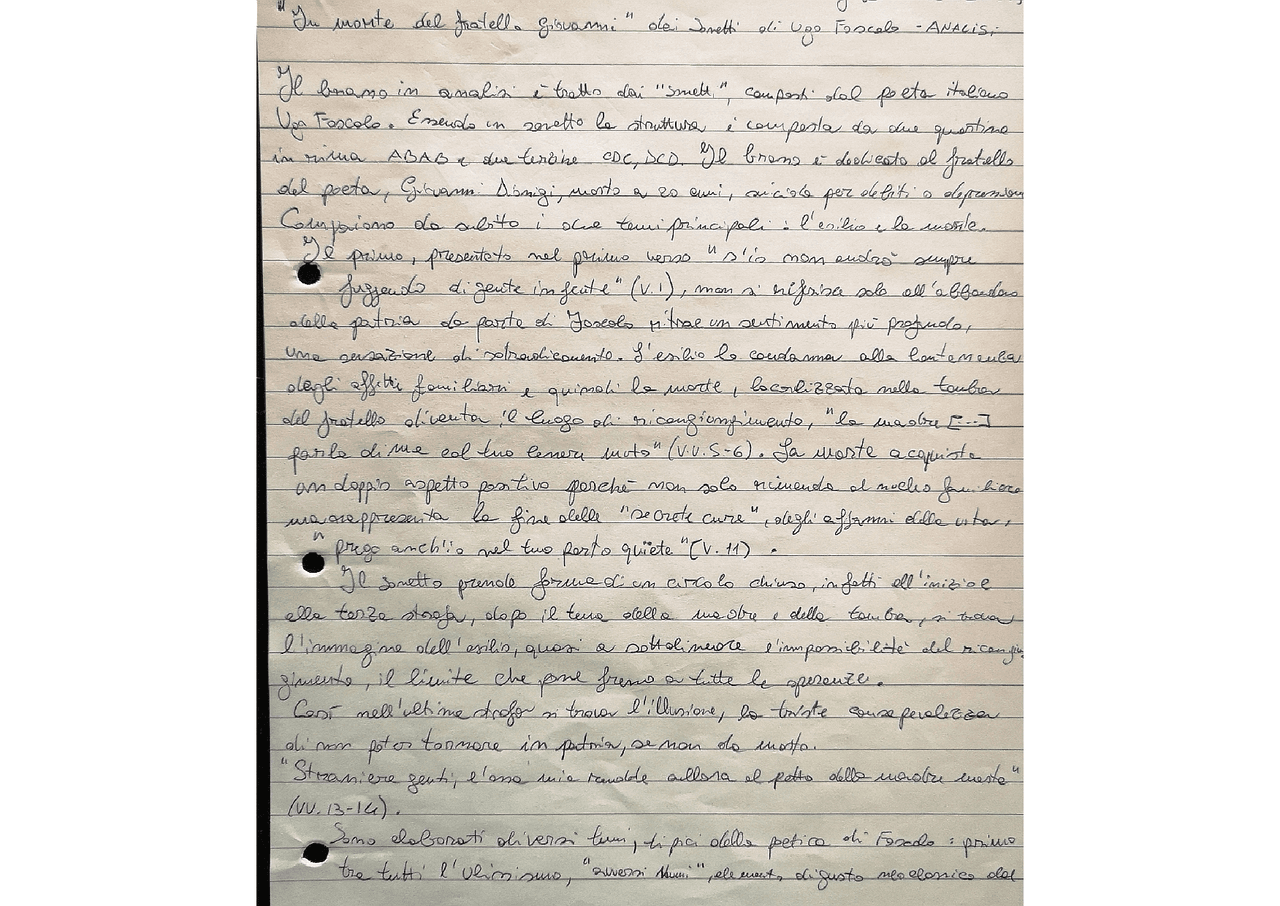 "In morte del fratello Giovanni" dai Sonetti di Ugo Foscolo - ANALISI
Il brano in analisi è tratto dai "Sonetti", composti dal poeta italiano
Ugo Foscolo. Essendo un sonetto la struttura è composta da due quartine
in rima ABAB e due terzine CDC, DCD. Il brano è dedicato al fratello
del poeta, Giovanni Dionigi, morto a 20 anni, suicida per debiti o depressione
Compaiono da subito i due temi principali: l'esilio e la morte.
Il primo, presentato nel primo verso "s'io non andrò sempre
fuggendo di gente in gente" (V.1), non si riferisce solo all'abbandono
della patria da parte di Foscolo ritrae un sentimento più profondo,
una sensazione di sdradicamento. L'esilio lo condanna alla lontananza
degli affetti familiari e quindi la morte, localizzata nella tomba
del fratello diventa il luogo di ricongiungimento, "la madre [...]
parla di me col tuo cenere muto" (V.V.5-6). La morte acquista
un doppio aspetto positivo perché non solo rimanda al nucleo familiare
ma rappresenta la fine delle "secrete cure", degli affanni della vita,
"prego anch'io nel tuo porto quiete" (V. 11).
Il sonetto prende forma di un circolo chiuso, infatti all'inizio e
alla terza strofa, dopo il tema della madre e della tomba, si trova
l'immagine dell'esilio, quasi a sottolineare l'impossibilità del ricongiun
gimento, il limite che pone freno a tutte le speranze.
Così nell'ultima strofa si trova l'illusione, la triste consapevolezza
di non poter tornare in patria, se non da morto.
"Straniere genti, l'ossa mie rendete allora al petto della madre mesta"
(VV. 13-14).
Sono elaborati diversi temi, tipici della poetica di Foscolo: primo
tra tutti l'Ulissismo, "avversi Numi", elemento di gusto neoclassico del